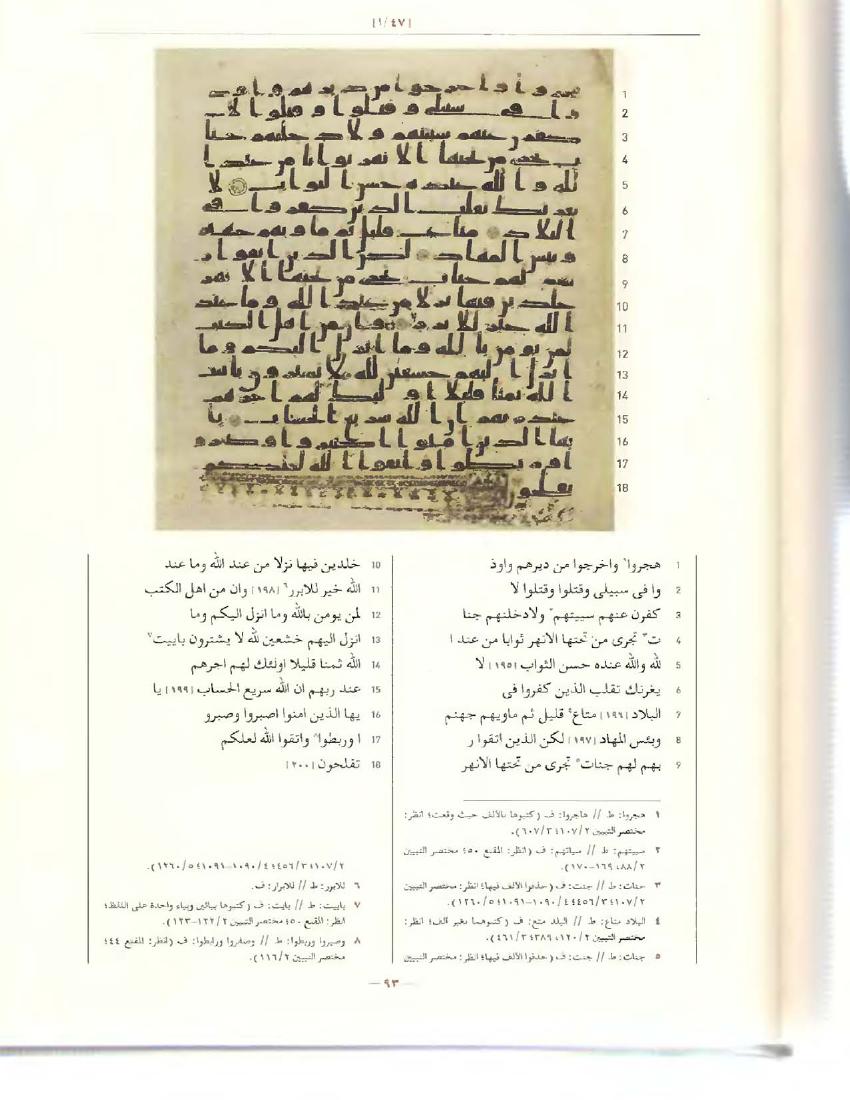 [١/٤٧]
1
2
3
4
5
6
7
8
9
10
11
12
13
14
15
16
17
18
1 هجروا١ واخرجوا من ديرهم واوذ
2 وا فى سبيلى وقتلوا وقتلوا لا
3 كفرن عنهم سييتهم٢ ولادخلنهم جنا
4 ت٣ تجرى من تحتها الانهر ثوابا من عند ا
5 لله والله عنده حسن الثواب [١٩٥] لا
6 يغرنك تقلب الذين كفروا فى
7 البلاد [١٩٦] متاع٤ قليل ثم ماويهم جهنم
8 وبئس المهاد [١٩٧] لكن الذين اتقوا ر
9 بهم لهم جنات٥ تجرى من تحتها الانهر
10 خلدين فيها نزلا من عند الله وما عند
11 الله خير للابرر٦ [١٩٨] وان من اهل الكتب
12 لمن يومن بالله وما انزل اليكم وما
13 انزل اليهم خشعين لله لا يشترون باييت٧
14 الله ثمنا قليلا اولئك لهم اجرهم
15 عند ربهم ان الله سريع الحساب [١٩٩] يا
16 يها الذين امنوا اصبروا وصبرو
17 ا وربطوا٨ واتقوا الله لعلكم
18 تفلحون [٢٠٠]
١ هجروا: ط // هاجروا: ف (كتبوها بالألف حيث وقعت؛ انظر:
مختصر التبيين
٢ سييتهم: ط // سياتهم: ف (انظر: المقنع ٥٠؛ مختصر التبيين
٢/٨٨، ١٦٩-١٧٠).
٣ جنات: ط // جنت: ف (حذفوا الألف فيها؛ انظر: مختصر التبيين
٤ البلاد متاع: ط // البلد متع: ف (كتبوهما بغير ألف؛ انظر:
مختصر التبيين
٥ جنات: ط // جنت: ف (حذفوا الألف فيها؛ انظر: مختصر التبيين
٦ للابرر: ط // للابرار: ف.
٧ باييت: ط // بايت: ف (كتبوها بيائين وبياء واحدة على اللفظ؛
انظر: المقنع ٥٠؛ مختصر التبيين ٢/١٢٢-١٢٣).
٨ وصبروا وربطوا: ط // وصابروا ورابطوا: ف (انظر: المقنع ٤٤؛
مختصر التبيين ٢/١١٦).
— ٩٣ —